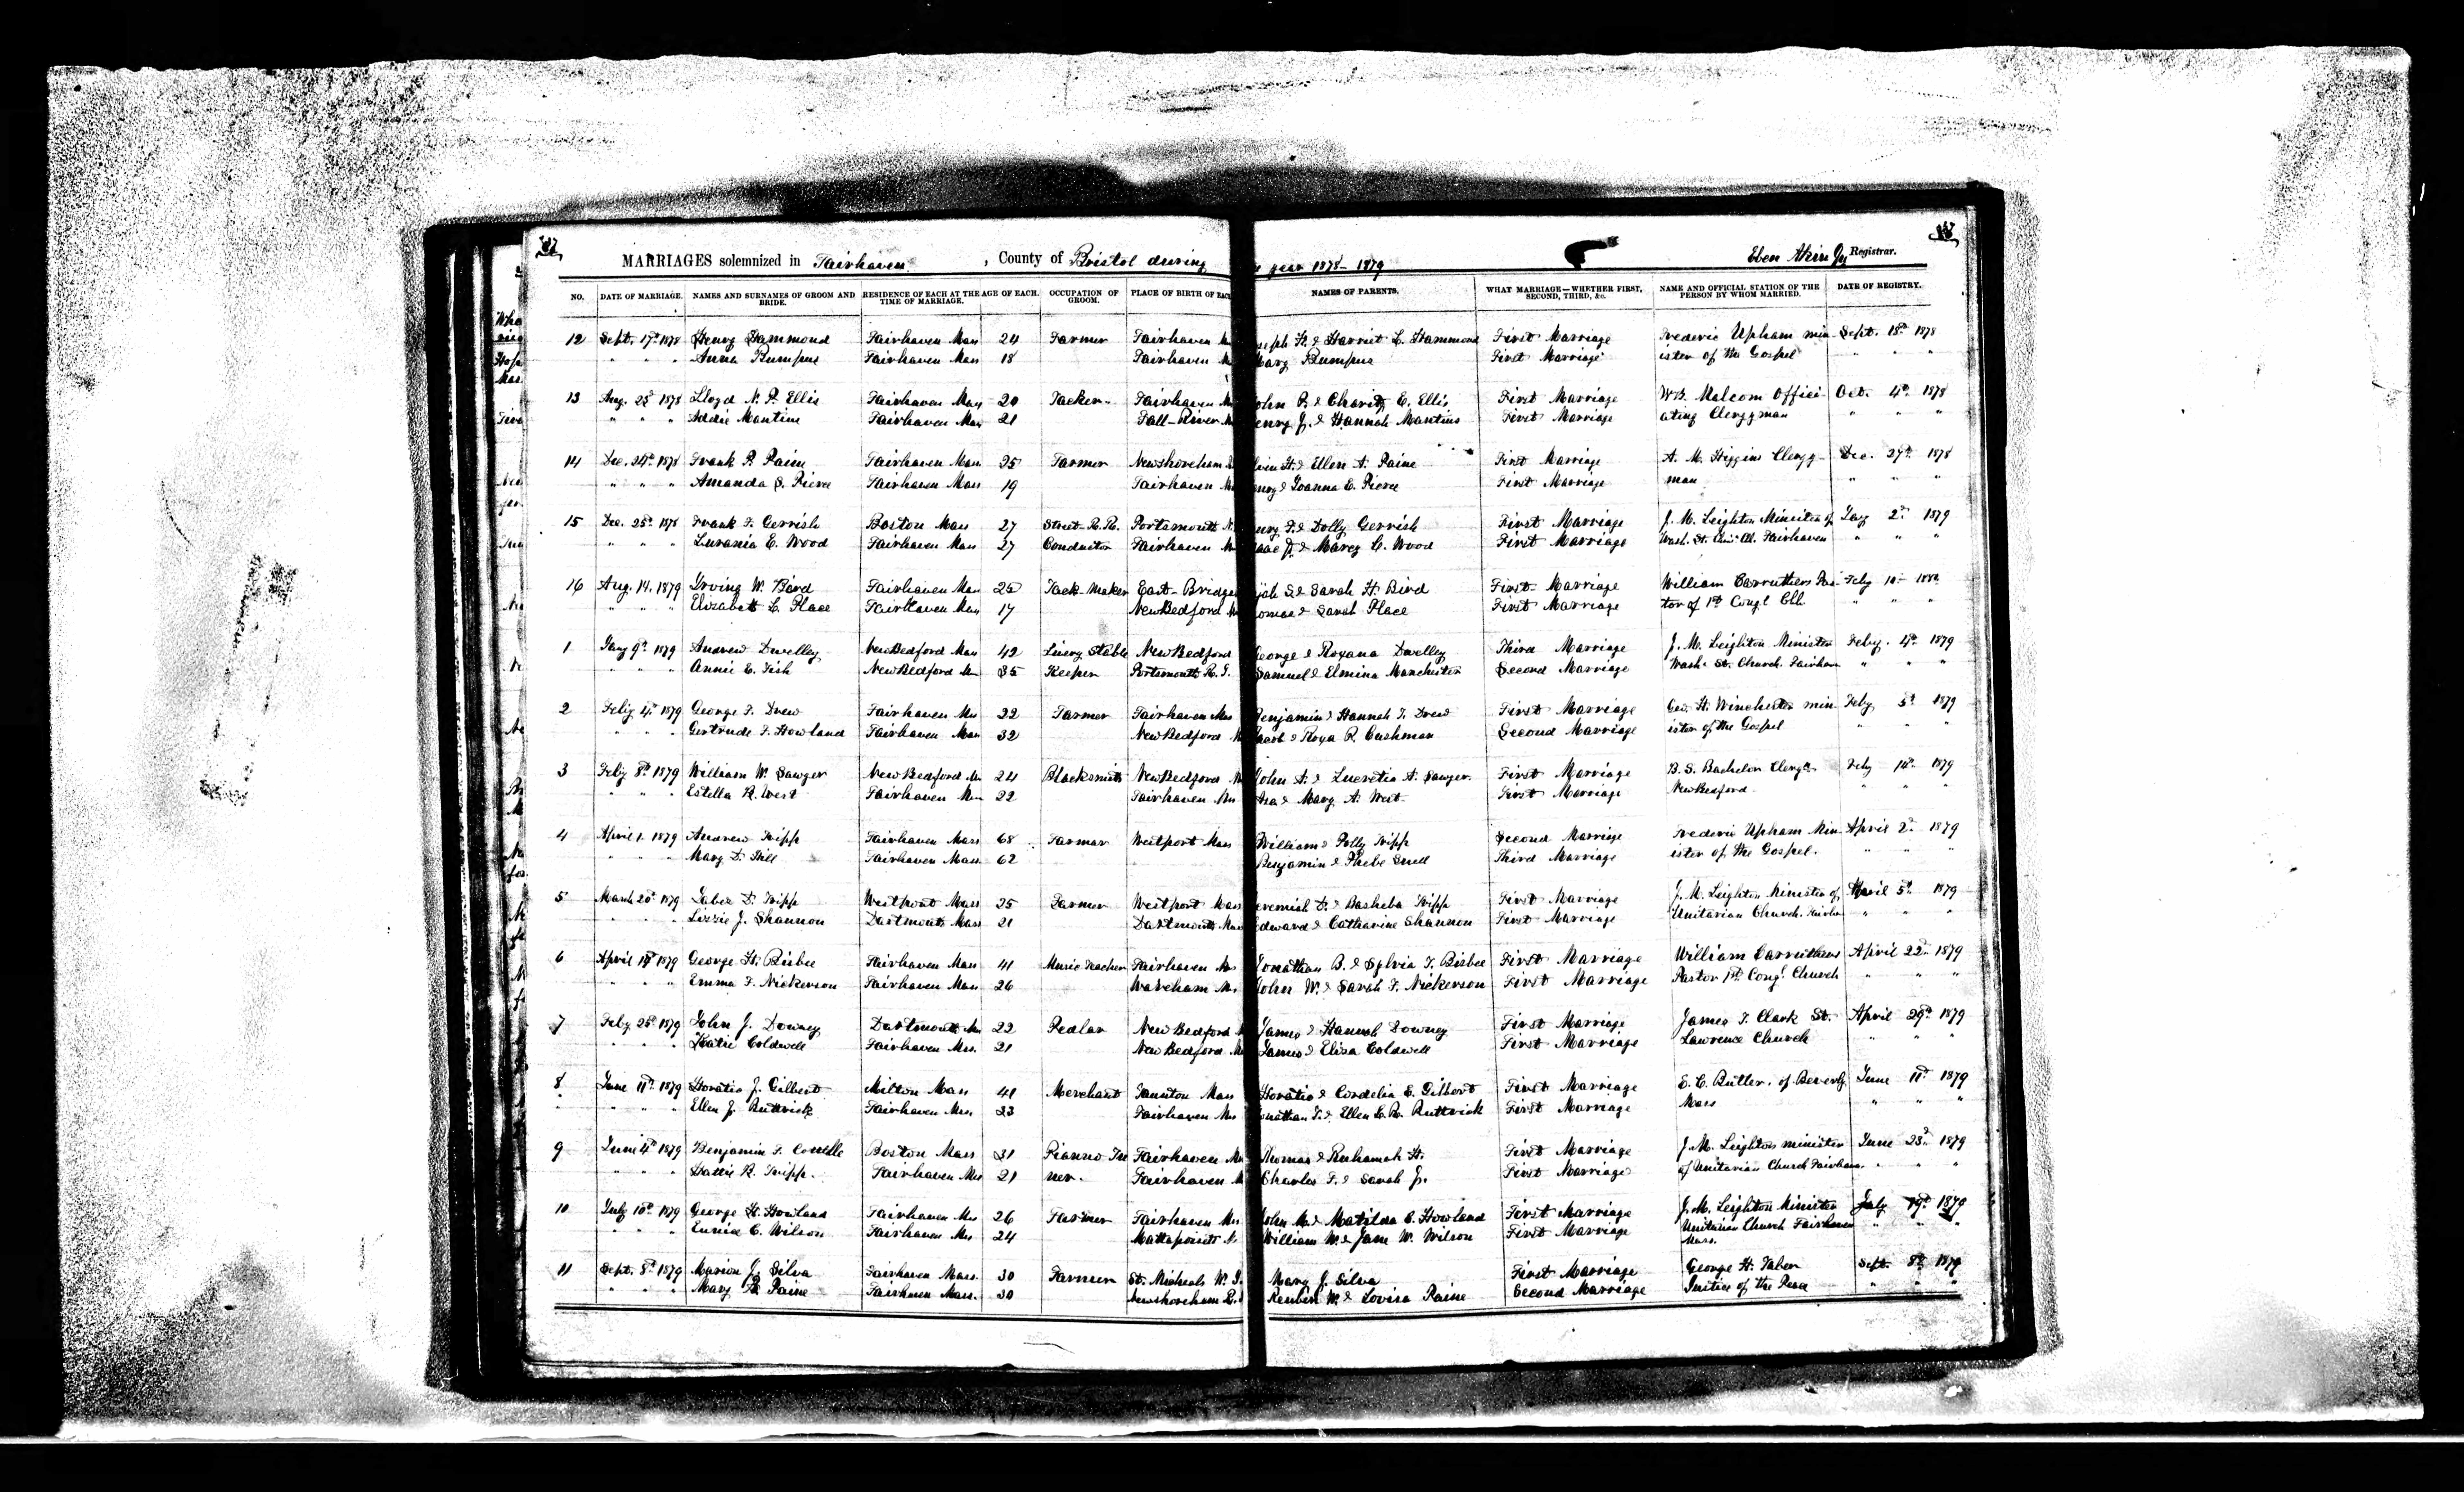 MARRIAGES solemnized in Fairhaven, County of Bristol during year 1878-1879 Eben Akin Jr Registrar.
NO. DATE OF MARRIAGE. NAMES AND SURNAMES OF GROOM AND BRIDE. RESIDENCE OF EACH AT THE TIME OF MARRIAGE. AGE OF EACH. OCCUPATION OF GROOM. PLACE OF BIRTH OF EACH NAMES OF PARENTS. WHAT MARRIAGE—WHETHER FIRST, SECOND, THIRD, &c. NAME AND OFFICIAL STATION OF THE PERSON BY WHOM MARRIED. DATE OF REGISTRY.
12 Sept. 17th 1878 Henry Hammond Fairhaven Mass 24 Farmer Fairhaven seph H. & Harriet L. Hammond First Marriage Frederic Upham min Sept. 18th 1878
" " " Anna Bumpus Fairhaven Mass 18 Fairhaven Mary Bumpus First Marriage ister of the Gospel " " "
13 Aug. 25th 1878 Lloyd N. P. Ellis Fairhaven Mass 20 Tacker Fairhaven ohn P. & Charity C. Ellis First Marriage W.B. Malcom Offici- Oct. 4th 1878
" " " Addie Mantius Fairhaven Mass 21 Fall-River enry J. & Hannah Mantius First Marriage ating Clergyman " " "
14 Dec. 24th 1878 Frank P. Paine Fairhaven Mass 25 Farmer Newshoreham lvin H. & Ellen A. Paine First Marriage A. M. Higgins Clergy- Dec. 27th 1878
" " " Amanda S. Pierce Fairhaven Mass 19 Fairhaven enry & Joanna E. Pierce First Marriage man " " "
15 Dec. 25th 1878 Frank F. Gerrish Boston Mass 27 Street-R.R. Portsmouth N. enry F. & Dolly Gerrish First Marriage J. M. Leighton Minister of Jany 2nd 1879
" " " Lurania E. Wood Fairhaven Mass 27 Conductor Fairhaven aac & Mary C. Wood First Marriage Wash. St. Fairhaven " " "
16 Aug. 14. 1879 Irving W. Bird Fairhaven Mass 25 Tack-Maker East-Bridge ijah S. & Sarah H. Bird First Marriage William Carruthers Pas- Feby 10th
" " " Elizabeth L. Place Fairhaven Mass 17 New Bedford omas & Sarah Place First Marriage tor of 1st Congl Ch. " " "
1 Jany 9th 1879 Andrew Dwelley New Bedford Mass 42 Livery Stable New Bedford George & Roxana Dwelley Third Marriage J. M. Leighton Minister Feby. 4th 1879
" " " Annie E. Fish New Bedford 35 Keeper Portsmouth R.I. Samuel & Elmina Manchester Second Marriage Wash. St. Church. Fairhaven " " "
2 Feby 4th 1879 George F. Drew Fairhaven Mass 22 Farmer Fairhaven Mass Benjamin & Hannah T. Drew First Marriage Geo. H. Winchester min- Feby 5th 1879
" " " Gertrude F. Howland Fairhaven Mass 32 New Bedford & Roxa R. Cushman Second Marriage ister of the Gospel " " "
3 Feby 8th 1879 William W. Sawyer New Bedford 24 Blacksmith New Bedford John A. & Lucretia A. Sawyer First Marriage B. S. Bachelor Clergn. Feby 10th 1879
" " " Estella R. West Fairhaven 22 Fairhaven Asa & Mary A. West First Marriage New Bedford " " "
4 April 1. 1879 Andrew Tripp Fairhaven Mass 68 Farmer Westport Mass William & Polly Tripp Second Marriage Frederic Upham Min- April 2nd 1879
" " " Mary D. Hill Fairhaven Mass 62 Benjamin & Phebe Snell Third Marriage ister of the Gospel. " " "
5 March 20th 1879 Jabez D. Tripp Westport Mass 25 Farmer Westport Mass Jeremiah D. & Basheba Tripp First Marriage J. M. Leighton Minister of April 5th 1879
" " " Lizzie J. Shannon Dartmouth Mass 21 Dartmouth Mass Edward & Catharine Shannon First Marriage Unitarian Church. " " "
6 April 1879 George H. Bisbee Fairhaven Mass 41 Music Teacher Fairhaven Jonathan B. & Sylvia T. Bisbee First Marriage William Carruthers April 22nd 1879
" " " Emma F. Nickerson Fairhaven Mass 26 Wareham John W. & Sarah F. Nickerson First Marriage Pastor 1st Congl Church " " "
7 Feby 25th 1879 John J. Downey Dartmouth 22 Pedlar New Bedford James & Hannah Downey First Marriage James F. Clark St. April 29th 1879
" " " Katie Coldwell Fairhaven 21 New Bedford James & Eliza Coldwell First Marriage Lawrence Church " " "
8 June 11th 1879 Horatio J. Gilbert Milton Mass 41 Merchant Taunton Mass Horatio & Cordelia E. Gilbert First Marriage E. C. Butler. of Beverly June 11th 1879
" " " Ellen J. Buttrick Fairhaven 23 Fairhaven onathan F. & Ellen L. R. Buttrick First Marriage Mass " " "
9 June 4th 1879 Benjamin F. Boston Mass 31 Pianno Tu Fairhaven Thomas & Ruhamah H. First Marriage J. M. Leighton minister June 23d 1879
" " " Hattie R. Tripp. Fairhaven 21 ner. Fairhaven Charles F. & Sarah J. First Marriage of Unitarian Church Fairhaven. " " "
10 July 10th 1879 George H. Howland Fairhaven 26 Farmer Fairhaven John M. & Matilda C. Howland First Marriage J. M. Leighton Minister July 1879
" " " Eunice C. Wilson Fairhaven 24 Mattapoisett William W. & Jane W. Wilson First Marriage Unitarian Church Fairhaven " " "
Mass.
11 Sept. 8th 1879 Marion J. Silva Fairhaven Mass. 30 Farmer St. Micheals W. I. Mary J. Silva First Marriage George H. Taber Sept. 8th 1879
" " " Mary B. Paine Fairhaven Mass. 30 Newshoreham R.I. Reuben W. & Lovisa Paine Second Marriage Justice of the Peace " " "